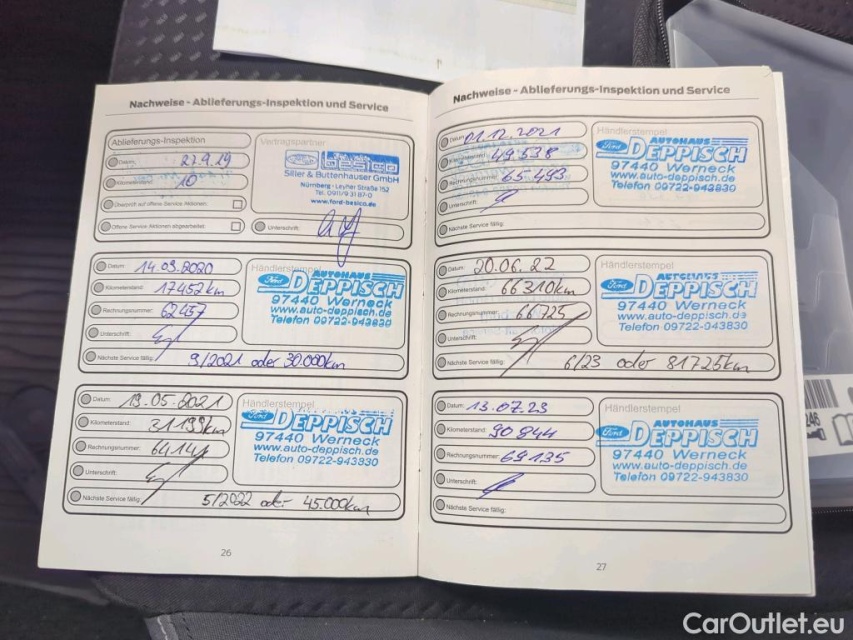 Nachweise - Ablieferungs-Inspektion und Service
Ablieferungs-Inspektion
Datum: 27.9.19
Kilometerstand: 10
Überprüft auf offene Service Aktionen:
Offene Service Aktionen abgearbeitet:
Vertragspartner
Ford besico
Siller & Buttenhauser GmbH
Nürnberg - Leyher Straße 152
Tel. 0911/9 31 87-0
www.ford-besico.de
Unterschrift:
Datum: 14.09.2020
Kilometerstand: 17457km
Rechnungsnummer: 62457
Unterschrift:
Nächste Service fällig: 9/2021 oder 30.000km
Händlerstempel
AUTOHAUS
Ford DEPPISCH
97440 Werneck
www.auto-deppisch.de
Telefon 09722-943830
Datum: 19.05.2021
Kilometerstand: 31199km
Rechnungsnummer: 64141
Unterschrift:
Nächste Service fällig: 5/2022 oder 45.000km
Händlerstempel
Ford DEPPISCH
97440 Werneck
www.auto-deppisch.de
Telefon 09722-943830
26
Nachweise - Ablieferungs-Inspektion und Service
Datum: 01.12.2021
Kilometerstand: 49.538
Rechnungsnummer: 65.493
Unterschrift:
Nächste Service fällig:
Händlerstempel
AUTOHAUS
Ford DEPPISCH
97440 Werneck
www.auto-deppisch.de
Telefon 09722-943830
Datum: 20.06.22
Kilometerstand: 66310km
Rechnungsnummer: 66725
Unterschrift:
Nächste Service fällig: 6/23 oder 81725km
Händlerstempel
AUTOHAUS
Ford DEPPISCH
97440 Werneck
www.auto-deppisch.de
Telefon 09722-943830
Datum: 13.07.23
Kilometerstand: 90844
Rechnungsnummer: 69135
Unterschrift:
Nächste Service fällig:
Händlerstempel
AUTOHAUS
Ford DEPPISCH
97440 Werneck
www.auto-deppisch.de
Telefon 09722-943830
27
246
CarOutlet.eu